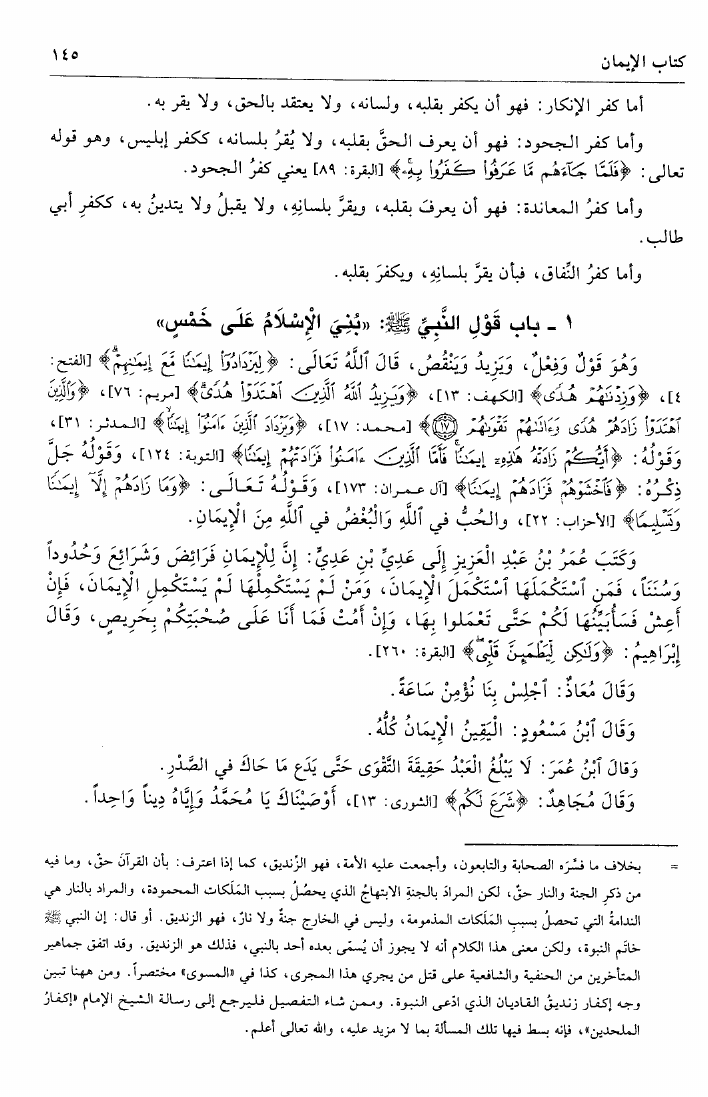 كتاب الإيمان
١٤٥
أما كفر الإنكار: فهو أن يكفر بقلبه، ولسانه، ولا يعتقد بالحق، ولا يقر به.
وأما كفر الجحود: فهو أن يعرف الحقَّ بقلبه، ولا يُقرُ بلسانه، ككفر إبليس، وهو قوله
تعالى: ﴿فَلَمَّا جَآءَهُم مَّا عَرَفُوا۟ كَفَرُوا۟ بِهِۦ﴾ [البقرة: ٨٩] يعني كفرُ الجحود.
وأما كفرُ المعاندة: فهو أن يعرفَ بقلبه، ويقرَّ بلسانِهِ، ولا يقبلُ ولا يتدينُ به، ككفرِ أبي
طالب.
وأما كفرُ النِّفاق، فبأن يقرَّ بلسانِهِ، ويكفرَ بقلبه.
١ - باب قَوْلِ النَّبِيِّ ﷺ: «بُنِيَ الْإِسْلَامُ عَلَى خَمْسٍ»
وَهُوَ قَوْلٌ وَفِعْلٌ، وَيَزِيدُ وَيَنْقُصُ، قَالَ ٱللَّهُ تَعَالَى: ﴿لِيَزْدَادُوٓا۟ إِيمَٰنًا مَّعَ إِيمَٰنِهِمْ﴾ [الفتح:
٤]، ﴿وَزِدْنَٰهُمْ هُدًى﴾ [الكهف: ١٣]، ﴿وَيَزِيدُ ٱللَّهُ ٱلَّذِينَ ٱهْتَدَوْا۟ هُدًى﴾ [مريم: ٧٦]، ﴿وَٱلَّذِينَ
ٱهْتَدَوْا۟ زَادَهُمْ هُدًى وَءَاتَىٰهُمْ تَقْوَىٰهُمْ ١٧﴾ [محمد: ١٧]، ﴿وَيَزْدَادَ ٱلَّذِينَ ءَامَنُوٓا۟ إِيمَٰنًا﴾ [المدثر: ٣١]،
وَقَوْلُهُ: ﴿أَيُّكُمْ زَادَتْهُ هَٰذِهِۦٓ إِيمَٰنًا فَأَمَّا ٱلَّذِينَ ءَامَنُوا۟ فَزَادَتْهُمْ إِيمَٰنًا﴾ [التوبة: ١٢٤]، وَقَوْلُهُ جَلَّ
ذِكْرُهُ: ﴿فَٱخْشَوْهُمْ فَزَادَهُمْ إِيمَٰنًا﴾ [آل عمران: ١٧٣]، وَقَوْلُهُ تَعَالَى: ﴿وَمَا زَادَهُمْ إِلَّآ إِيمَٰنًا
وَتَسْلِيمًا﴾ [الأحزاب: ٢٢]، والحُبُّ في ٱللَّهِ وَالْبُغْضُ في ٱللَّهِ مِنَ الْإِيمَانِ.
وَكَتَبَ عُمَرُ بْنُ عَبْدِ الْعَزِيزِ إِلَى عَدِيِّ بْنِ عَدِيٍّ: إِنَّ لِلْإِيمَانِ فَرَائِضَ وَشَرَائِعَ وَحُدُوداً
وَسُنَناً، فَمَنِ ٱسْتَكْمَلَهَا ٱسْتَكْمَلَ الْإِيمَانَ، وَمَنْ لَمْ يَسْتَكْمِلْهَا لَمْ يَسْتَكْمِلِ الْإِيمَانَ، فَإِنْ
أَعِشْ فَسَأُبَيِّنُهَا لَكُمْ حَتَّى تَعْمَلوا بِهَا، وَإِنْ أَمُتْ فَمَا أَنَا عَلَى صُحْبَتِكُمْ بِحَرِيصٍ، وَقَالَ
إِبْرَاهِيمُ: ﴿وَلَٰكِن لِّيَطْمَئِنَّ قَلْبِى﴾ [البقرة: ٢٦٠].
وَقَالَ مُعَاذٌ: ٱجْلِسْ بِنَا نُؤْمِنْ سَاعَةً.
وَقَالَ ٱبْنُ مَسْعُودٍ: الْيَقِينُ الْإِيمَانُ كُلُّهُ.
وَقالَ ٱبْنُ عُمَرَ: لَا يَبْلُغُ الْعَبْدُ حَقِيقَةَ التَّقْوَى حَتَّى يَدَعَ مَا حَاكَ في الصَّدْرِ.
وَقَالَ مُجَاهِدٌ: ﴿شَرَعَ لَكُم﴾ [الشورى: ١٣]، أَوْصَيْنَاكَ يَا مُحَمَّدُ وَإِيَّاهُ دِيناً وَاحِداً.
= بخلاف ما فسَّرَه الصحابة والتابعون، وأجمعت عليه الأمة، فهو الزنديق، كما إذا اعترف: بأن القرآنَ حقٌ، وما فيه
من ذكرِ الجنة والنار حقٌ، لكن المرادَ بالجنةِ الابتهاجُ الذي يحصُلُ بسبب المَلَكات المحمودة، والمراد بالنار هي
الندامةُ التي تحصلُ بسببِ المَلَكات المذمومة، وليس في الخارج جنةٌ ولا نارٌ، فهو الزنديق. أو قال: إن النبي ﷺ
خاتَم النبوة، ولكن معنى هذا الكلام أنه لا يجوز أن يُسمَّى بعده أحد بالنبي، فذلك هو الزنديق. وقد اتفق جماهير
المتأخرين من الحنفية والشافعية على قتل من يجري هذا المجرى، كذا في «المسوى» مختصراً. ومن ههنا تبين
وجه إكفار زنديقُ القاديان الذي ادَّعى النبوة. وممن شاء التفصيل فليرجع إلى رسالة الشيخ الإمام «إكفارُ
الملحدين»، فإنه بسط فيها تلك المسألة بما لا مزيد عليه، والله تعالى أعلم.